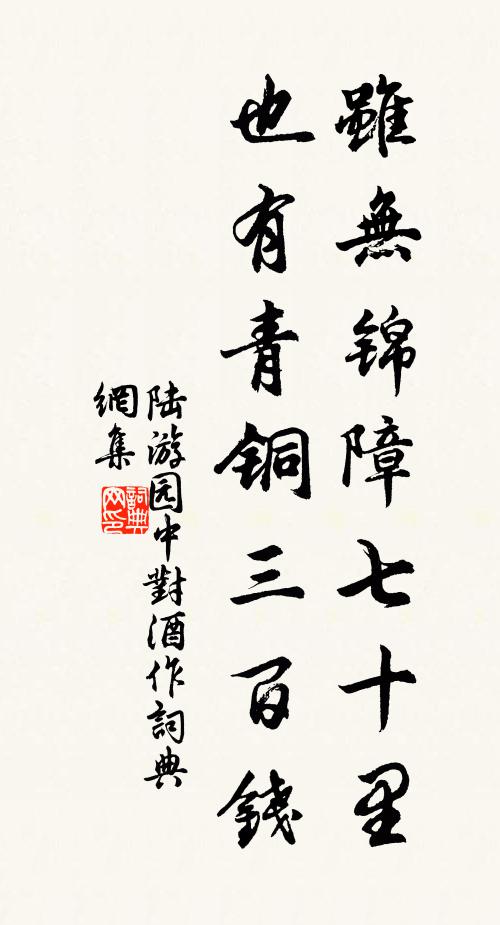 雖無锦障七十里
也有青铜三百錢
陆游园中對酒作詞典
網集
詞典
网印